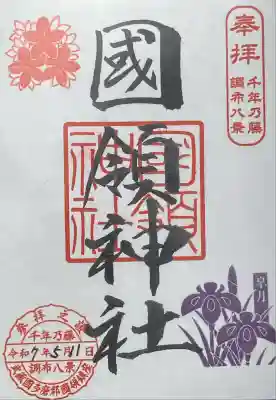 奉拝
千年乃藤
調布八景
國領神社
國領
神社
皐月
参拝之証
千年乃藤
令和7年5月11日
調布八景
武蔵國多磨郡國領神社